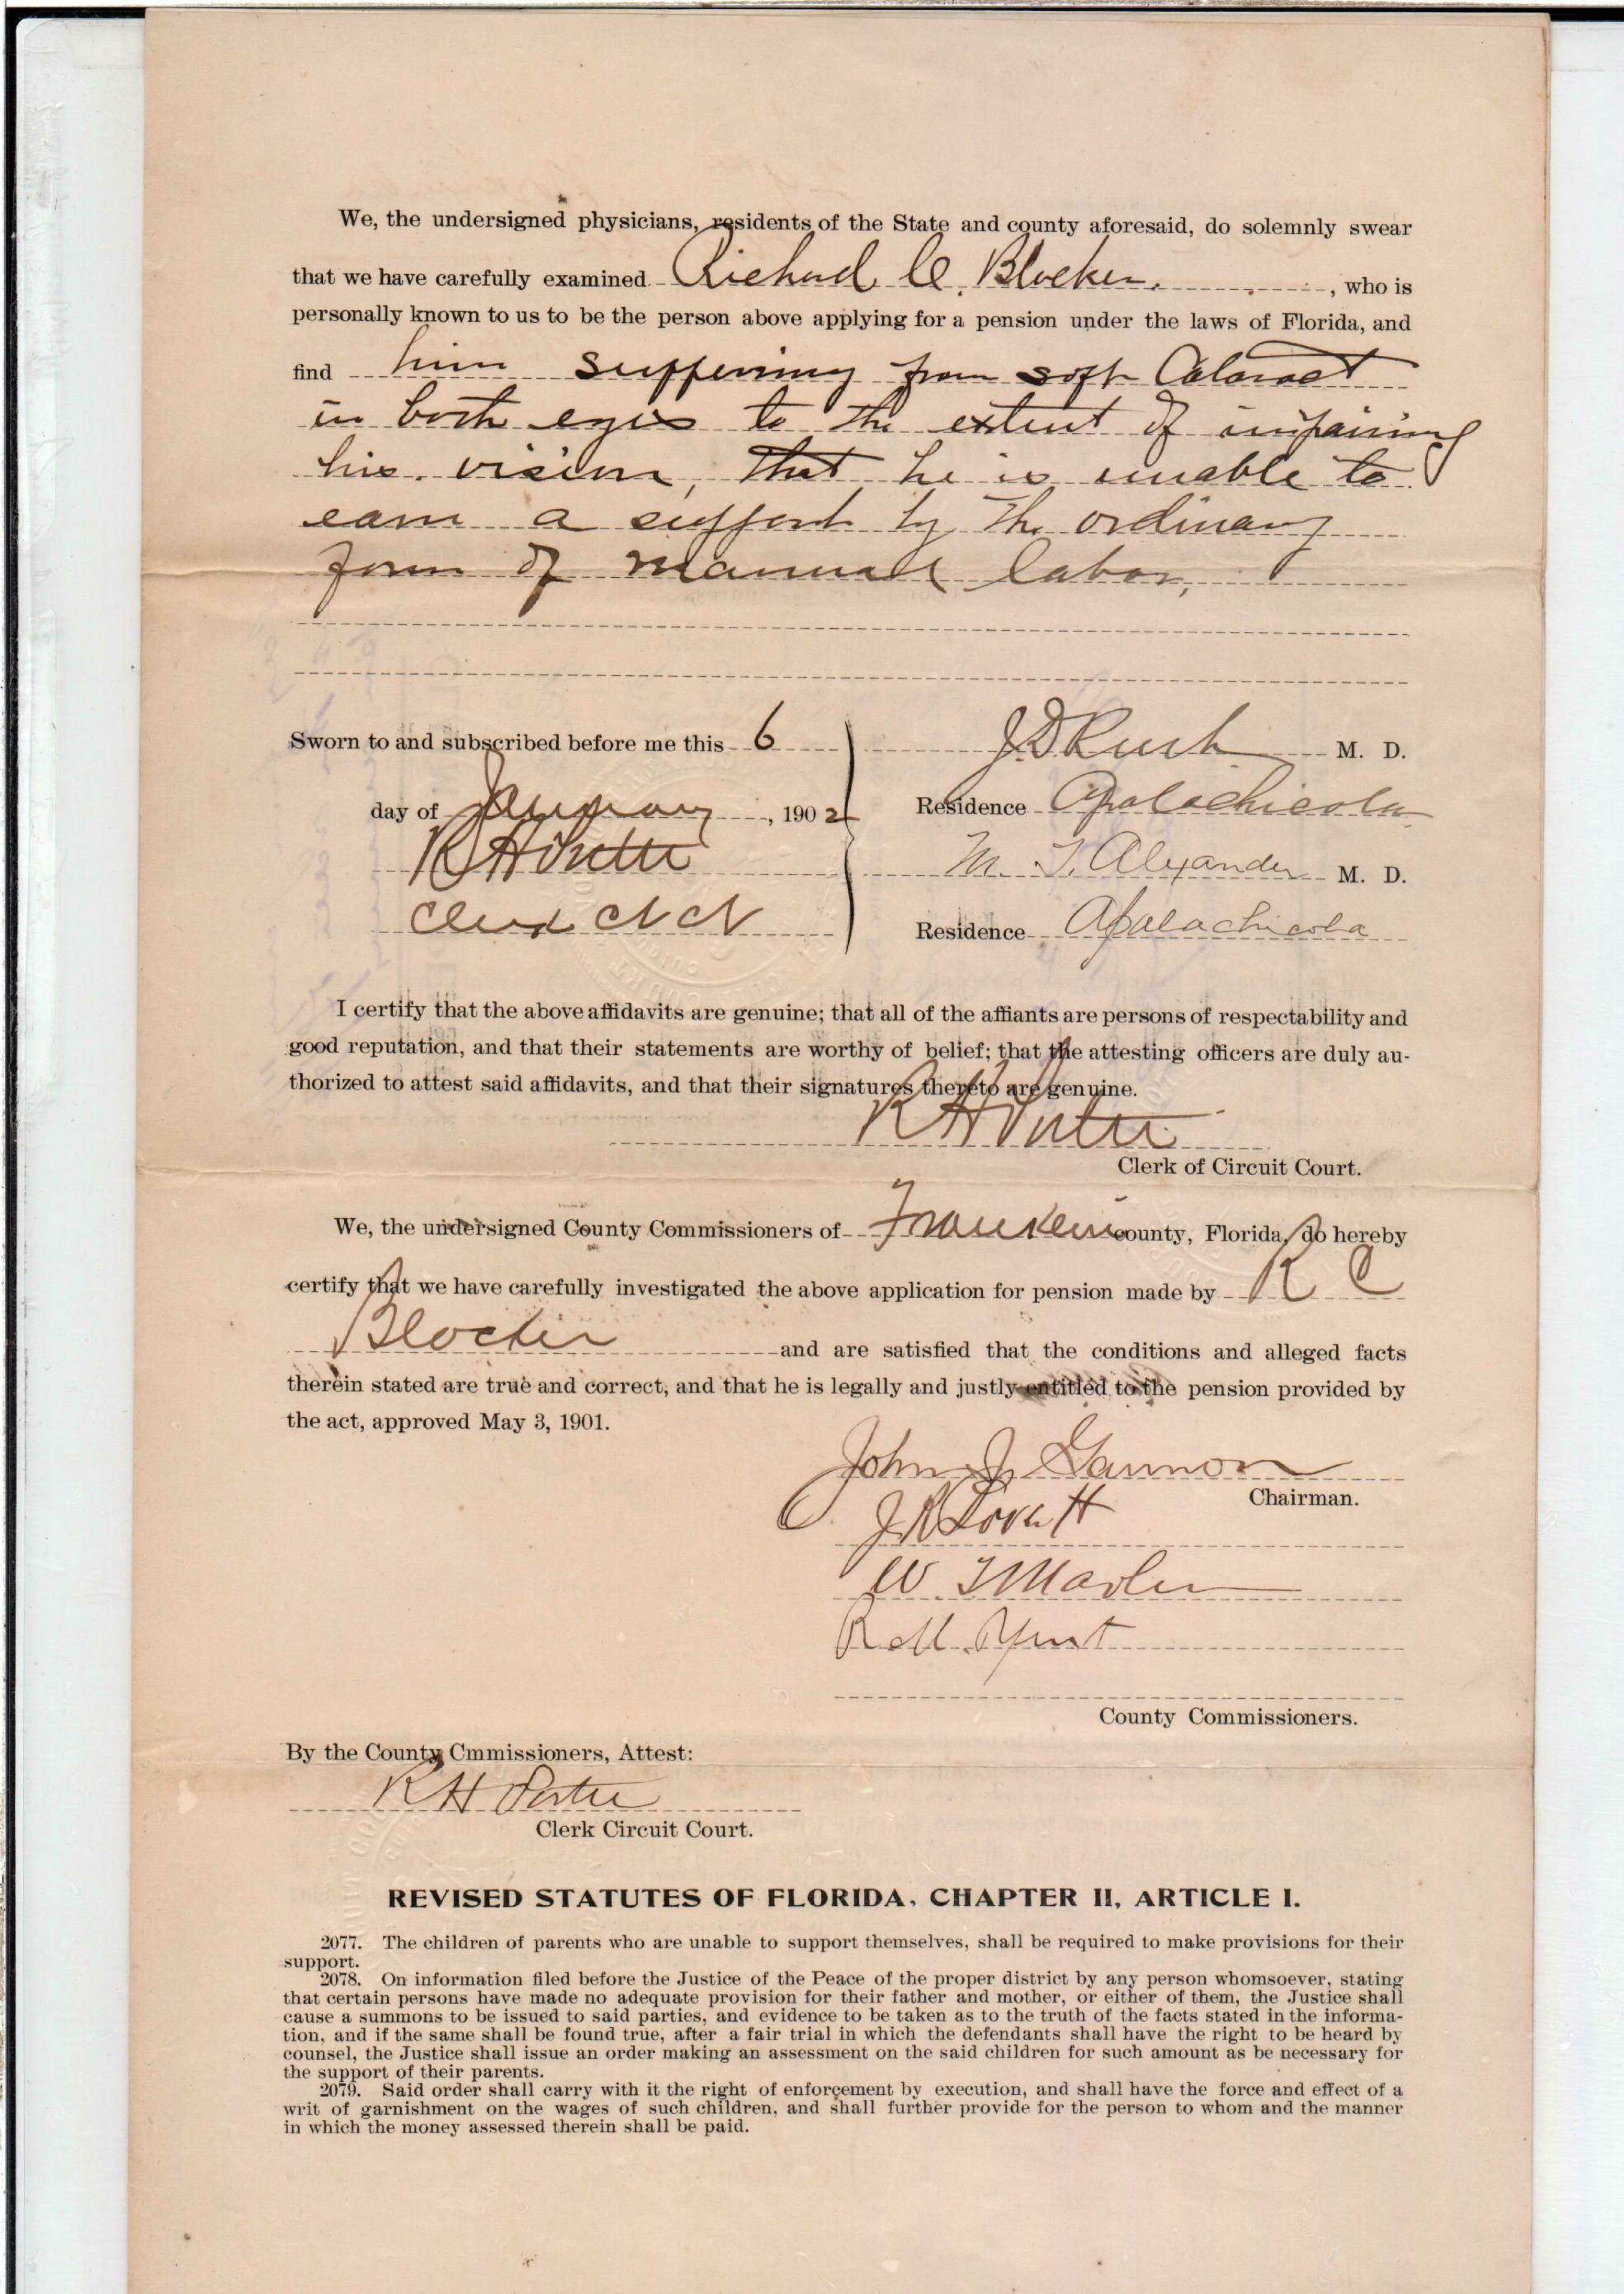 We, the undersigned physicians, residents of the State and county aforesaid, do solemnly swear
that we have carefully examined Richard C. Blocker, who is
personally known to us to be the person above applying for a pension under the laws of Florida, and
find him suffering from soft Cataract
in both eyes to the extent of impairing
his vision, that he is unable to
earn a support by the ordinary
form of manual labor,
Sworn to and subscribed before me this 6
J D Rush M. D.
day of January, 1902
Residence Apalachicola
R H Porter
M. T. Alexander M. D.
Clerk
Residence Apalachicola
I certify that the above affidavits are genuine; that all of the affiants are persons of respectability and
good reputation, and that their statements are worthy of belief; that the attesting officers are duly au-
thorized to attest said affidavits, and that their signatures thereto are genuine.
R H Porter
Clerk of Circuit Court.
We, the undersigned County Commissioners of Franklin county, Florida, do hereby
certify that we have carefully investigated the above application for pension made by R C
Blocker and are satisfied that the conditions and alleged facts
therein stated are true and correct, and that he is legally and justly entitled to the pension provided by
the act, approved May 3, 1901.
John J. Gannon
Chairman.
J R Lovett
W. T Marler
R
County Commissioners.
By the County Cmmissioners, Attest:
R H Porter
Clerk Circuit Court.
REVISED STATUTES OF FLORIDA, CHAPTER II, ARTICLE I.
2077. The children of parents who are unable to support themselves, shall be required to make provisions for their
support.
2078. On information filed before the Justice of the Peace of the proper district by any person whomsoever, stating
that certain persons have made no adequate provision for their father and mother, or either of them, the Justice shall
cause a summons to be issued to said parties, and evidence to be taken as to the truth of the facts stated in the informa-
tion, and if the same shall be found true, after a fair trial in which the defendants shall have the right to be heard by
counsel, the Justice shall issue an order making an assessment on the said children for such amount as be necessary for
the support of their parents.
2079. Said order shall carry with it the right of enforcement by execution, and shall have the force and effect of a
writ of garnishment on the wages of such children, and shall further provide for the person to whom and the manner
in which the money assessed therein shall be paid.